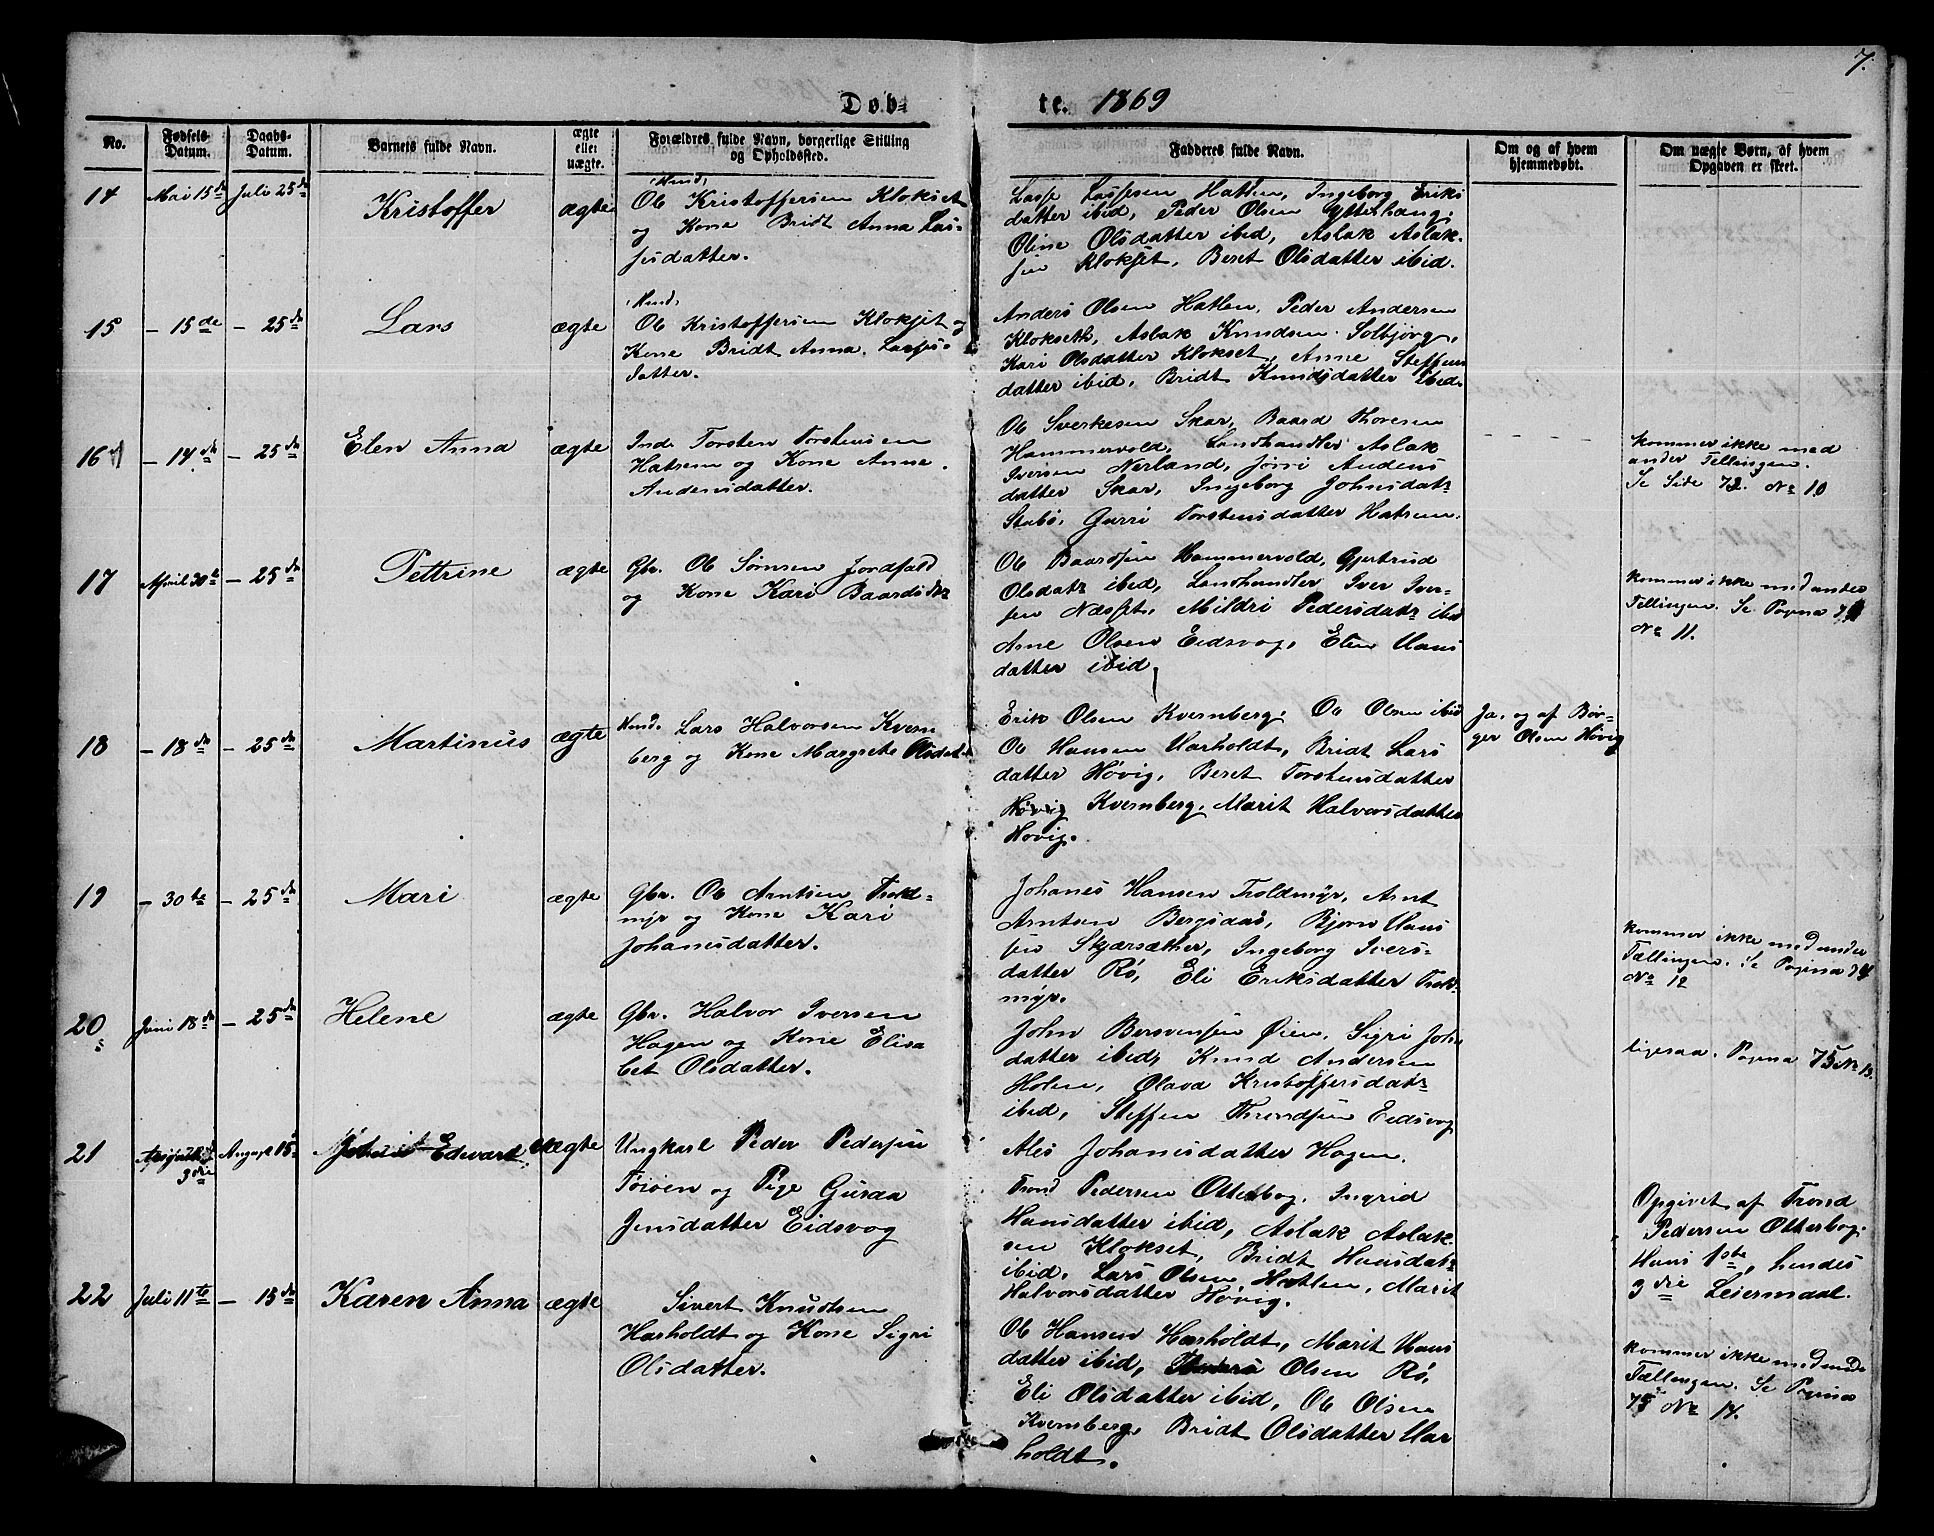 7.
Døb- te. 1869
No.
Fødsels Datum.
Daabs- Datum.
Barnets fulde Navn.
ægte eller uægte.
Forældres fulde Navn, borgerlige Stilling og Opholdssted.
Fadderes fulde Navn.
Om og af hvem hjemmedøbt.
Om uægte Børn, af hvem Opgaven er skeet.
14 Mai 15de Juli 25de Kristoffer ægte
Huusd.
Ole Kristoffersen Klokset
og Kone Bridt Anna Las-
sesdatter.
Lasse Lassesen Hatlen, Ingeborg Eriks
datter ibid, Peder Olsen Ytterhaug,
Oline Olsdatter ibid, Aslak Aslak-
sen Klokset, Beret Olsdatter ibid.
15 – 15de – 25de Lars ægte
Huusd.
Ole Kristoffersen Klokset og
Kone Bridt Anna Lasses-
datter.
Anders Olsen Hatlen, Peder Andersen
Klokseth, Aslak Knudsen Solbjørg,
Kari Olsdatter Klokset, Anne Steffens
datter ibid, Bridt Knudsdatter ibid.
16 – 14de – 25de Elen Anna ægte
Ind. Torsten Torstensen
Hatrem og Kone Anne
Andersdatter.
Ole Sverkesen Skar, Baard Thoresen
Hammervold, Landhandler Aslak
Iversen Nerland, Anders
datter Skar, Ingeborg Johnsdatr
Stubø, Gurri Torstensdatter Hatrem.
kommer ikke med
under Tellingen.
Se Side 72. No 10
17 April 30te – 25de Pettrine ægte
Gbr. Ole Sørnsen Jordfald
og Kone Kari Baardsdtr
Ole Baardsen Hammervold, Gjertrud
Olsdatr ibid, Landhandler Iver Iver-
sen Næsset, Mildri Pedersdatr ibid
Arne Olsen Eidsvog, Elen Hans
datter ibid.
kommer ikke med under
Tellingen. Se Pagina
No 11.
18 – 18de – 25de Martinus ægte
Huusd. Lars Halvorsen Kvern
berg og Kone Margrete Olsdat
Erik Olsen Kvernberg, Ole Olsen ibid
Ole Hansen Harholdt, Bridt Lars
datter Høvig, Beret Torstensdatter
Høvig Kvernberg, Marit Halvorsdatter
Høvig.
Ja, og af Bør-
ger Olsen Høvig
19 – 30te – 25de Mari ægte
Gbr. Ole Arntsen Trold-
myr og Kone Kari
Johanisdatter.
Johanes Hansen Troldmyr, Arnt
Arntsen Bergsaas, Bjørn Hans
sen Skjærsæther, Ingeborg Ivers-
datter Rø, Eli Eriksdatter Trold-
myr.
kommer ikke med under
Tællingen. Se Pagina 74
No 12
20 Juni 18de – 25de Helene ægte
Gbr. Halvor Iversen
Hagen og Kone Elisa
bet Olsdatter.
John Bersvensen Øien, Sigri John
datter ibid, Knud Andersen
Holen, Olava Kristoffersdatr
ibid, Steffen Trondsen Eidsvog
Ales Johanisdatter Hagen.
ligesaa. Pagina 75 No 13.
21 3die August 15 Edvard uægte
Ungkarl Peder Pedersen
Tøiøen og Pige Guraa
Jensdatter Eidsvog
Trond Pedersen Otterbog, Ingrid
Hansdatter ibid, Aslak Aslak-
sen Klokset, Bridt Hansdatr
ibid, Lars Olsen Hatlen, Marit
Halvorsdatter Høvig.
Opgivet af Trond
Pedersen Otterbog.
Hans 1ste, hendes
3die Leiermaal.
22 Juli 11te – 15de Karen Anna ægte
Sivert Knudsen
Harholdt og Kone Sigri
Olsdatter.
Ole Hansen Harholdt, Marit Hans
datter ibid, Olsen Rø,
Eli Olsdatter ibid, Ole Olsen
Kvernberg, Bridt Olsdatter Har
holdt.
kommer ikke med unde
Tællingen. Se Pagina
75 No 14.